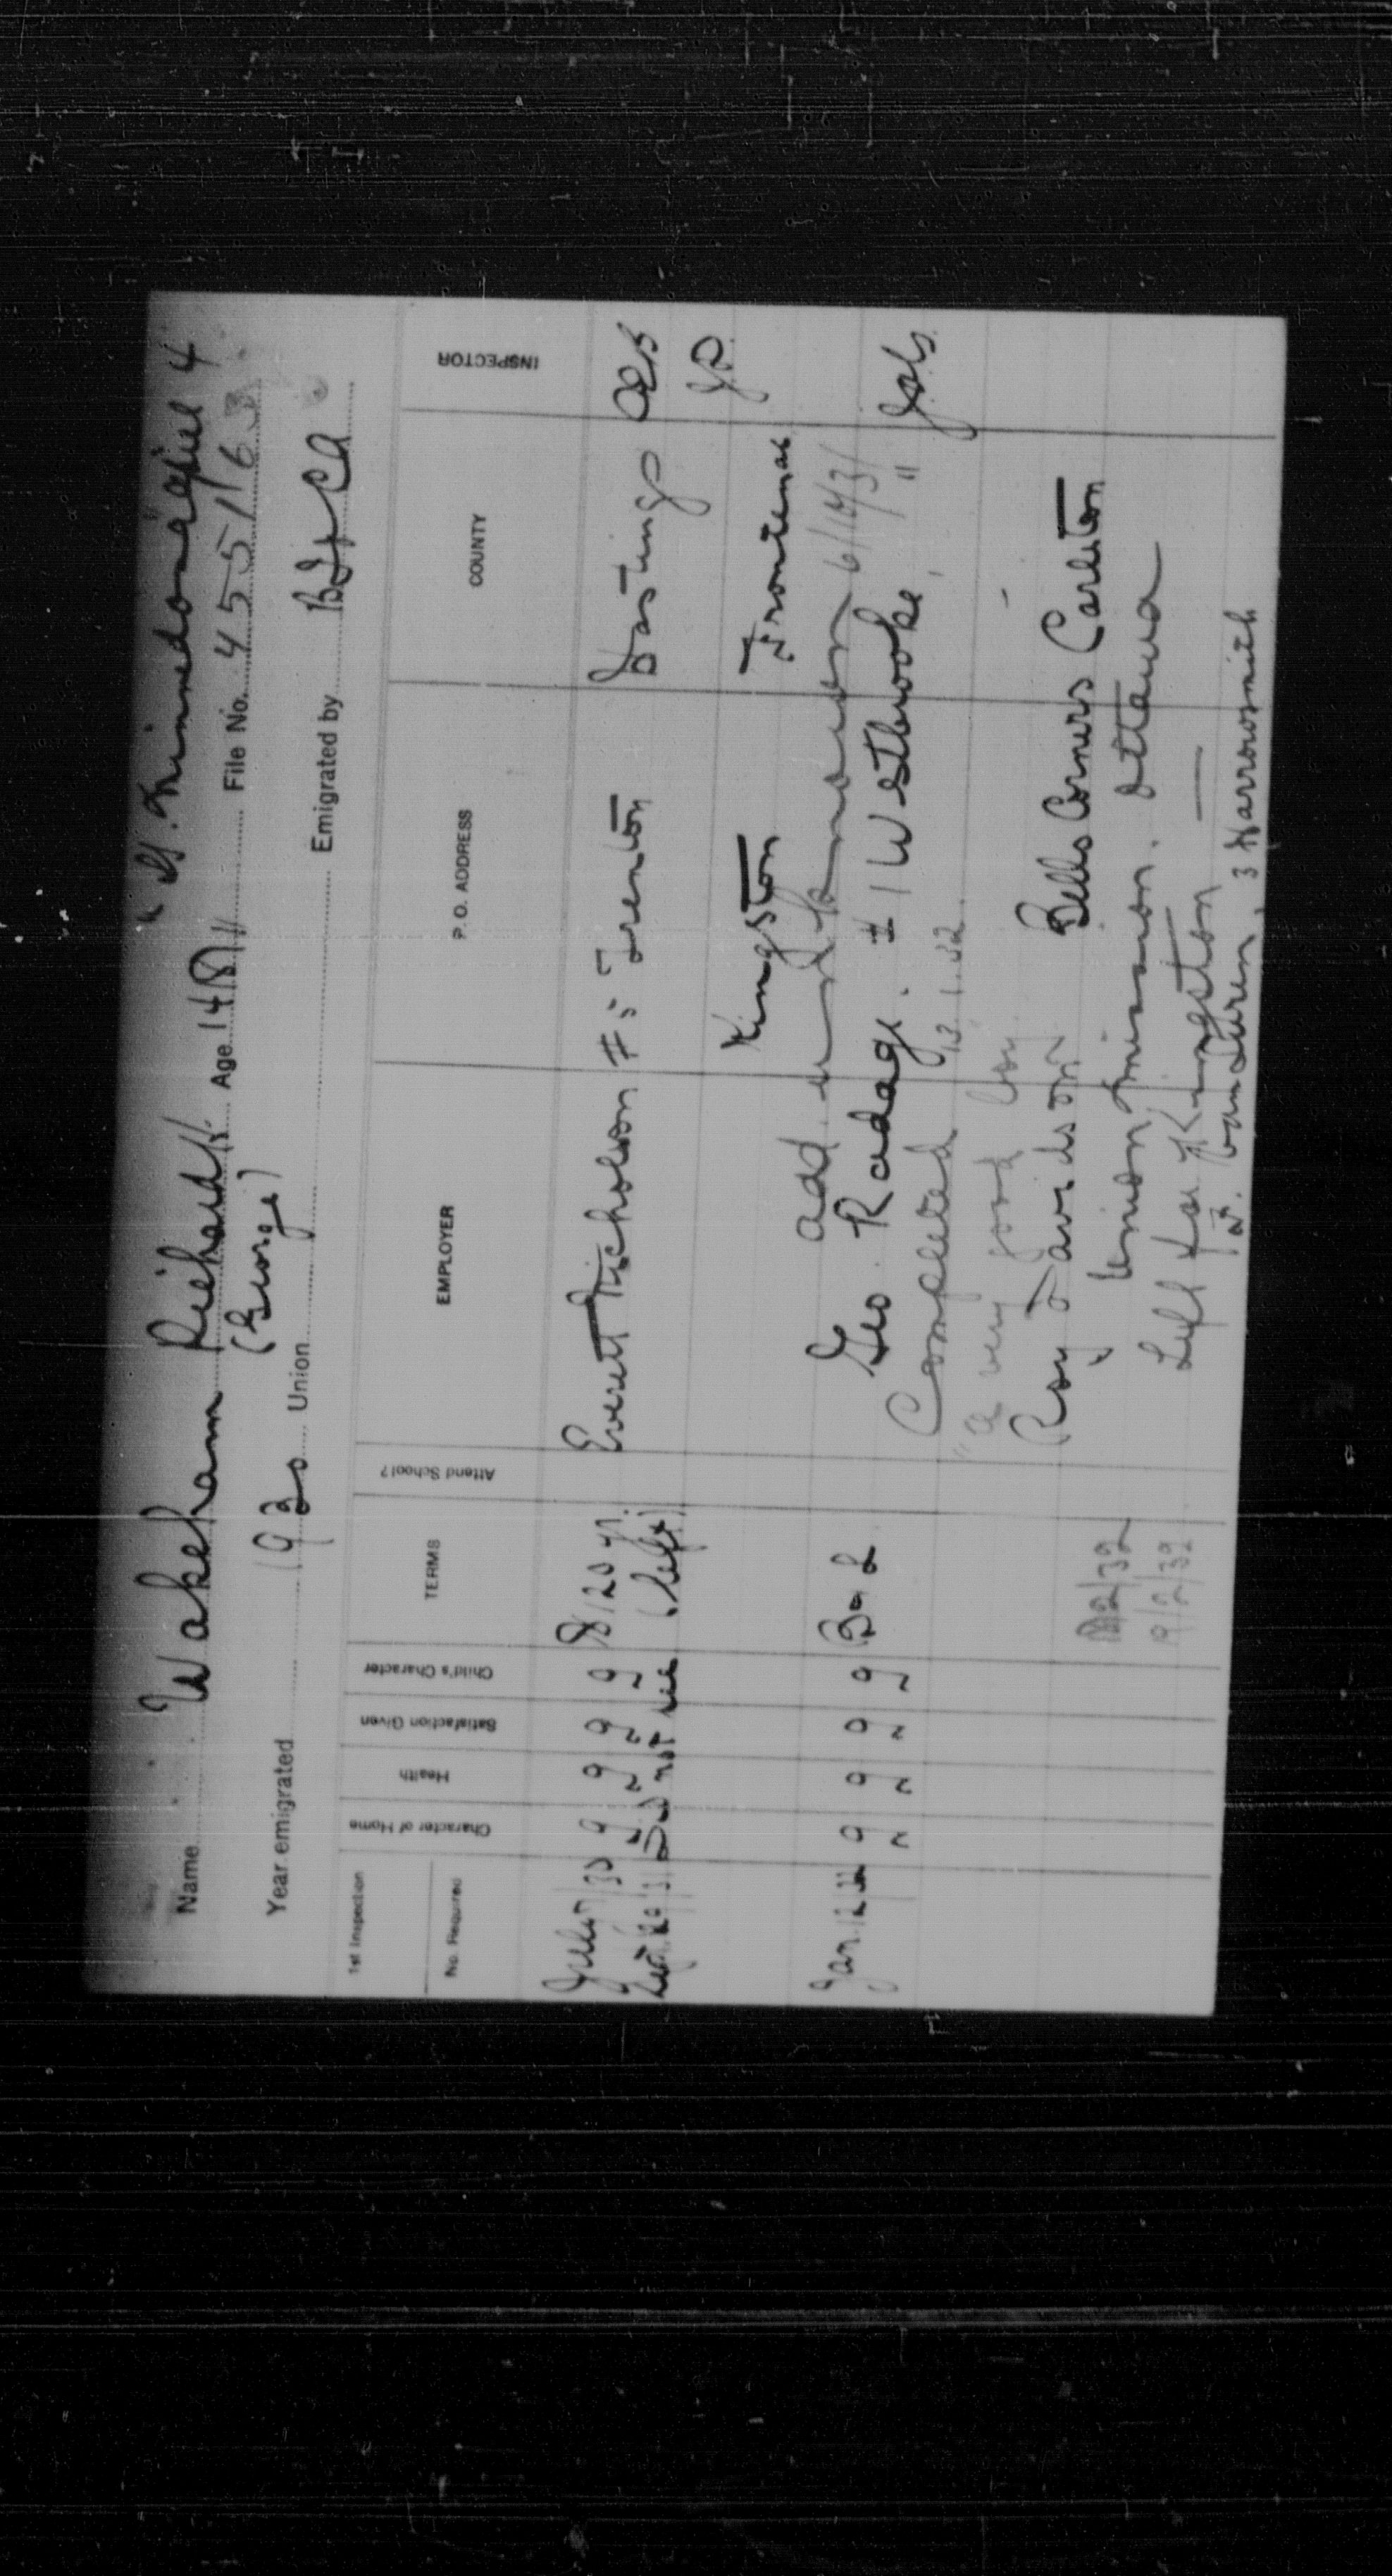 Name Wakeham Richard " S.S. Minnedosa April 4
(George) Age 14 File No. 455163
Year emigrated 1930 Union Emigrated by BICA
1st Inspection
No. Required
Character of Home Health Satisfaction Given Child's Character TERMS Attend School? EMPLOYER P. O. ADDRESS COUNTY INSPECTOR
July 7/30 g g g g $120 yr. Everett Nicholson #5 Trenton Hastings
Sept 20/31 Did not see (left)
Kingston Frontenac
add. unknown 6/10/31
Jan. 12 32 g g g g B & L Geo. Radage #1 Westbrooke "
Completed 13.1.32
"a very good boy
Roy Davidson Bells Corners Carleton
Union Mission. Ottawa
19/2/32 Left for Kingston —
Van Luven, 3 Harrowsmith